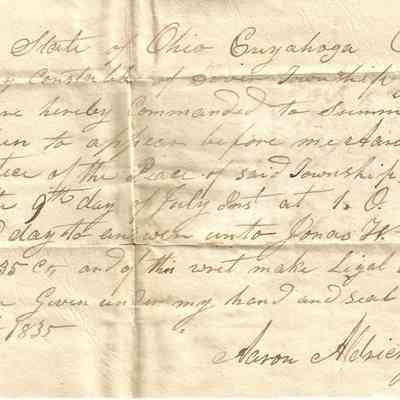 State of Ohio Cuyahoga C
y Constable of Dover Township
re hereby Commanded to Summ
to appear before me Aaro
tice of the Peace of said Township
9th day of July Inst at 1. O.
day to answer unto Jonas H.
35 cts and of this writ make Legal
Given under my hand and seal
1835
Aaron Aldrich